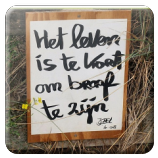 Het leven
is te kort
om braaf
te zijn